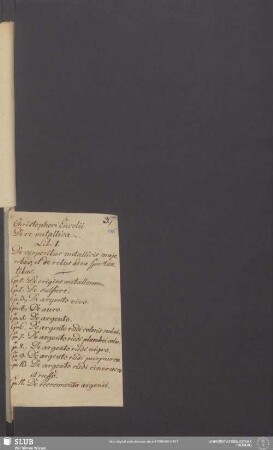 37
Christophori Encelii
De re metallica.
Lib. I.
De corporibus metallicis maje
ribus, et de rebus
tibus.
Cp. 1. De origine metallorum.
Cp. 2. De sulfure.
Cp. 3. De argento vivo.
Cp. 4. De auro.
Cp. 5. De argento.
Cp. 6. De argento rudi coloris rubei.
Cp. 7. De argento rudi plumbei color.
Cp. 8. De argento rudi nigro.
Cp. 9. De argento rudi purpureo.
Cp. 10. De argento rudi cinerareo
et ruffo.
Cp. 11. De excrementis argenti.
SLUB
Wir führen Wissen.